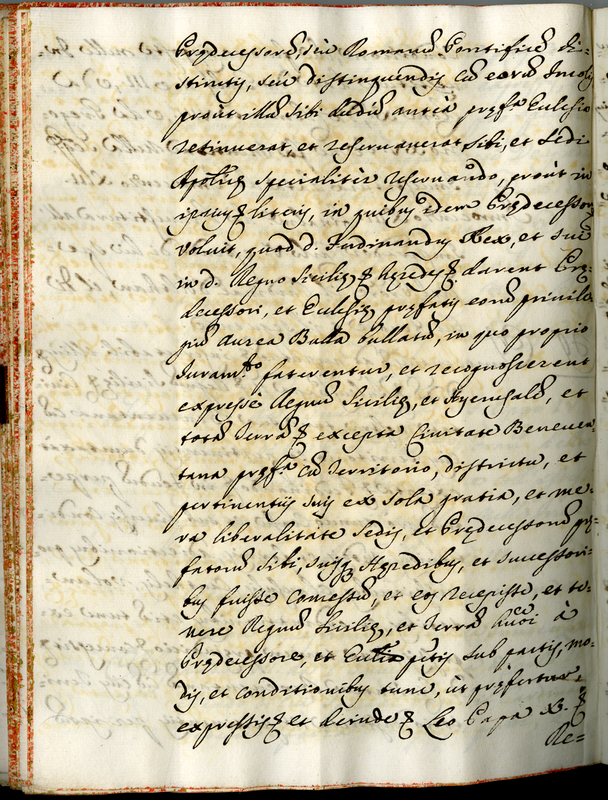 Prędecessorũ, seu Romanũ Pontificũ di=
stinctis, seu distinguendis cũ eorũ Incolis
prout illũ sibi dudũ antea pręfa. Ecclesia
retinuerat, et reservaverat sibi, et Sedi
Aplicę specialiter reservando, prout in
ipsius literis, in quibus idem Prędecessor
voluit, quod d. Ferdinandus Rex, et sui
in d. Regno Sicilię Hęredes darent Prę-
decessori, et Ecclesię pręfatis eorũ privile
giũ aurea Bulla bullatũ, in quo proprio
Iuramto faterentur, et recognoscerent
expresse Regnũ Sicilię, et Hyerusalẽ, et
totã Terrã excepta Civitate Beneven
tana pręfa. cũ Territorio, districtu, et
pertinentiis suis ex sola gratia, et me-
ra liberalitate Sedis, et Prędecessorũ prę-
fatorũ sibi, suisq Hęredibus, et successori-
bus fuisse concessũ, et eos recepisse, et te-
nere Regnũ Sicilię, et Terrã huõi à
Prędecessore, et Ecclia pttis sub pactis, mo-
dis, et conditionibus tunc, ut pręfertur,
expressis et deinde Leo Papa X.
de=